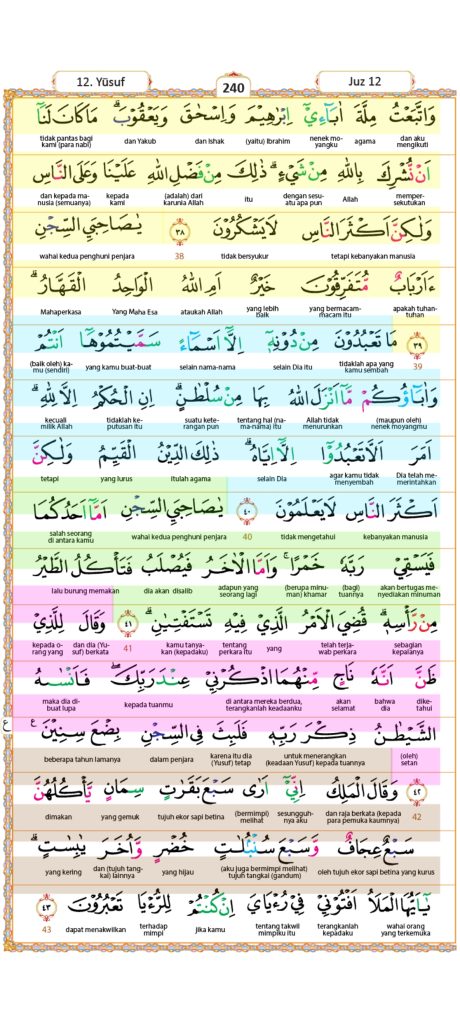 12. Yūsuf
240
Juz 12
وَاتَّبَعْتُ مِلَّةَ اٰبَاۤءِيْٓ اِبْرٰهِيْمَ وَاِسْحٰقَ وَيَعْقُوْبَۗ مَا كَانَ لَنَآ
dan aku mengikuti agama nenek mo-yangku (yaitu) Ibrahim dan Ishak dan Yakub tidak pantas bagi kami (para nabi)
اَنْ نُّشْرِكَ بِاللّٰهِ مِنْ شَيْءٍۗ ذٰلِكَ مِنْ فَضْلِ اللّٰهِ عَلَيْنَا وَعَلَى النَّاسِ
memper-sekutukan Allah dengan sesu-atu apa pun itu (adalah) dari karunia Allah kepada kami dan kepada ma-nusia (semuanya)
وَلٰكِنَّ اَكْثَرَ النَّاسِ لَا يَشْكُرُوْنَ ٣٨ يٰصَاحِبَيِ السِّجْنِ
tetapi kebanyakan manusia tidak bersyukur 38 wahai kedua penghuni penjara
ءَاَرْبَابٌ مُّتَفَرِّقُوْنَ خَيْرٌ اَمِ اللّٰهُ الْوَاحِدُ الْقَهَّارُۗ
apakah tuhan-tuhan yang bermacam-macam itu yang lebih baik ataukah Allah Yang Maha Esa Mahaperkasa
٣٩ مَا تَعْبُدُوْنَ مِنْ دُوْنِهٖٓ اِلَّآ اَسْمَاۤءً سَمَّيْتُمُوْهَآ اَنْتُمْ
39 tidaklah apa yang kamu sembah selain Dia itu selain nama-nama yang kamu buat-buat (baik oleh) ka-mu (sendiri)
وَاٰبَاۤؤُكُمْ مَّآ اَنْزَلَ اللّٰهُ بِهَا مِنْ سُلْطٰنٍۗ اِنِ الْحُكْمُ اِلَّا لِلّٰهِۗ
(maupun oleh) nenek moyangmu Allah tidak menurunkan tentang hal (na-ma-nama) itu suatu kete-rangan pun tidaklah ke-putusan itu kecuali milik Allah
اَمَرَ اَلَّا تَعْبُدُوْٓا اِلَّآ اِيَّاهُۗ ذٰلِكَ الدِّيْنُ الْقَيِّمُ وَلٰكِنَّ
Dia telah me-merintahkan agar kamu tidak menyembah selain Dia itulah agama yang lurus tetapi
اَكْثَرَ النَّاسِ لَا يَعْلَمُوْنَ ٤٠ يٰصَاحِبَيِ السِّجْنِ اَمَّآ اَحَدُكُمَا
kebanyakan manusia tidak mengetahui 40 wahai kedua penghuni penjara salah seorang di antara kamu
فَيَسْقِيْ رَبَّهٗ خَمْرًاۗ وَاَمَّا الْاٰخَرُ فَيُصْلَبُ فَتَأْكُلُ الطَّيْرُ
akan bertugas me-nyediakan minuman (bagi) tuannya (berupa minu-man) khamar adapun yang seorang lagi dia akan disalib lalu burung memakan
مِنْ رَّأْسِهٖۗ قُضِيَ الْاَمْرُ الَّذِيْ فِيْهِ تَسْتَفْتِيٰنِۗ ٤١ وَقَالَ لِلَّذِيْ
sebagian kepalanya telah terja-wab perkara yang tentang perkara itu kamu tanya-kan (kepadaku) 41 dan dia (Yu-suf) berkata kepada o-rang yang
ظَنَّ اَنَّهٗ نَاجٍ مِّنْهُمَا اذْكُرْنِيْ عِنْدَ رَبِّكَۖ فَاَنْسٰىهُ
dike-tahui bahwa dia akan selamat di antara mereka berdua, terangkanlah keadaanku kepada tuanmu maka dia di-buat lupa
الشَّيْطٰنُ ذِكْرَ رَبِّهٖ فَلَبِثَ فِى السِّجْنِ بِضْعَ سِنِيْنَ ࣖ
(oleh) setan untuk menerangkan (keadaan Yusuf) kepada tuannya karena itu dia (Yusuf) tetap dalam penjara beberapa tahun lamanya
ع
٤٢ وَقَالَ الْمَلِكُ اِنِّيْٓ اَرٰى سَبْعَ بَقَرٰتٍ سِمَانٍ يَّأْكُلُهُنَّ
42 dan raja berkata (kepada para pemuka kaumnya) sesungguh-nya aku (bermimpi) melihat tujuh ekor sapi betina yang gemuk dimakan
سَبْعٌ عِجَافٌ وَّسَبْعَ سُنْۢبُلٰتٍ خُضْرٍ وَّاُخَرَ يٰبِسٰتٍۗ
oleh tujuh ekor sapi betina yang kurus (aku juga bermimpi melihat) tujuh tangkai (gandum) yang hijau dan (tujuh tang-kai) lainnya yang kering
يٰٓاَيُّهَا الْمَلَاُ اَفْتُوْنِيْ فِيْ رُءْيَايَ اِنْ كُنْتُمْ لِلرُّءْيَا تَعْبُرُوْنَ ٤٣
wahai orang yang terkemuka terangkanlah kepadaku tentang takwil mimpiku itu Jika kamu terhadap mimpi dapat menakwilkan 43